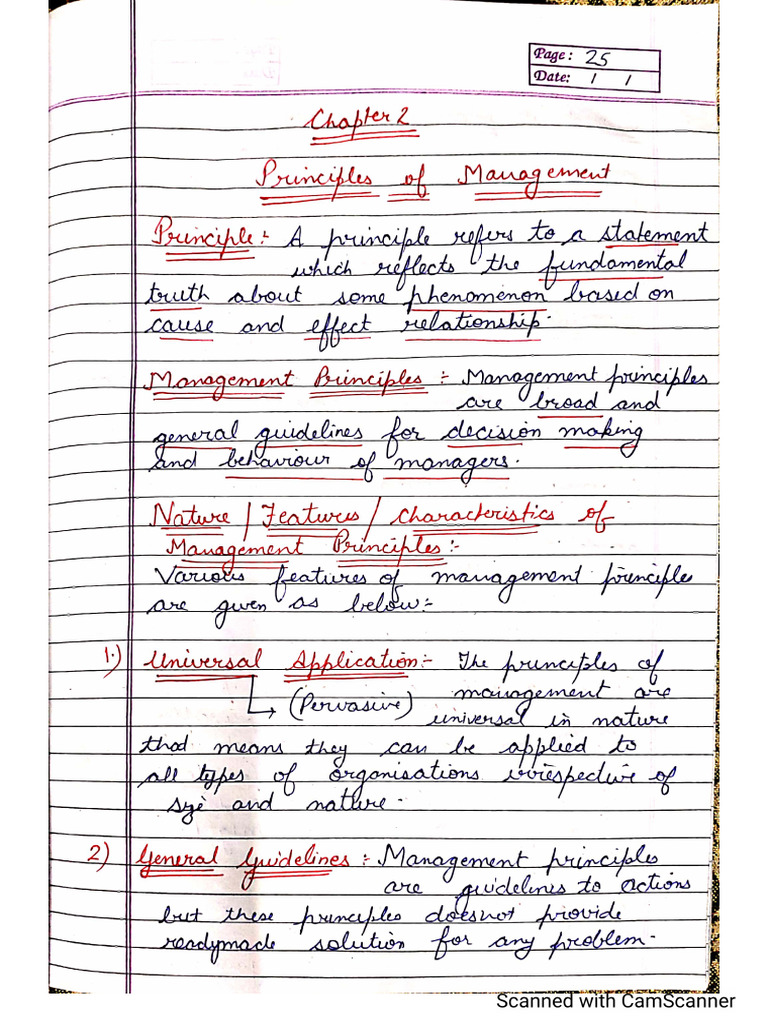 Page: 25
Date: / /
Chapter 2
Principles of Management
Principle:- A principle refers to a statement
which reflects the fundamental
truth about some phenomenon based on
cause and effect relationship.
Management Principles :- Management principles
are broad and
general guidelines for decision making
and behaviour of managers.
Nature / Features / Characteristics of
Management Principles:-
Various features of management principles
are given as below:-
1.) Universal Application:- The principles of
(Pervasive) management are
universal in nature
that means they can be applied to
all types of organisations irrespective of
size and nature.
2) General Guidelines :- Management principles
are guidelines to actions
but these principles doesnot provide
readymade solution for any problem.
Scanned with CamScanner